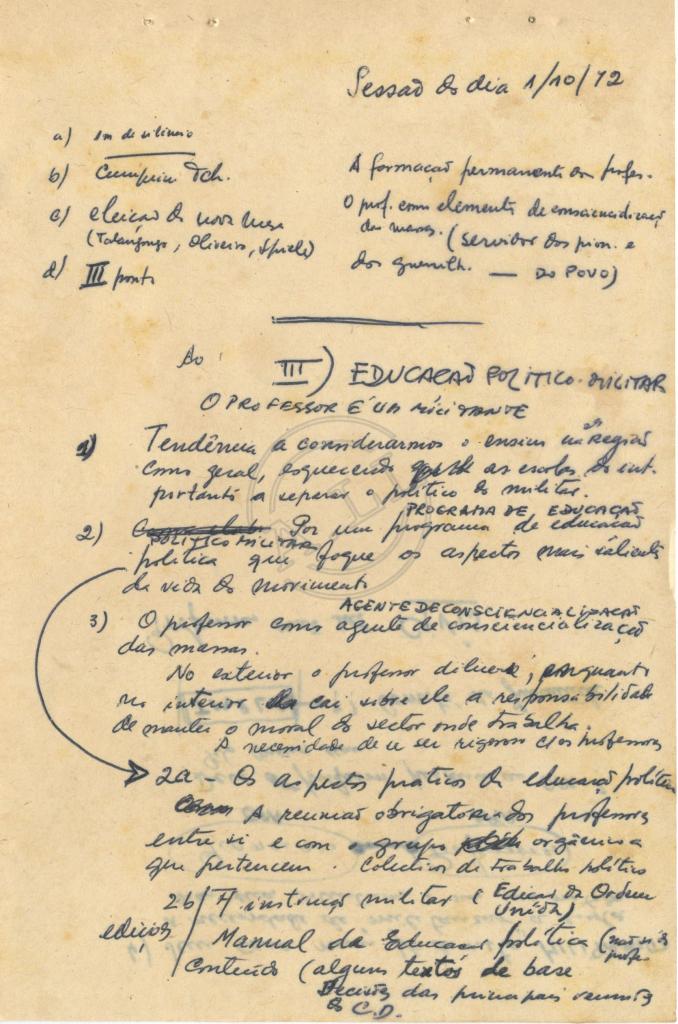 Sessão do dia 1/10/72
a) 1m de silêncio
b) Cumprim Tch.
c) eleição da nova mesa
(Talangongo, Oliveira, Spiele)
d) III ponto
A formação permanente dos profes.
O prof. como elemento de consciencializaç
das massas. (servidor dos pion. e
dos guerrilh. — DO POVO)
Ao
III) EDUCAÇÃO POLITICO-MILITAR
O PROFESSOR É UM MILITANTE
1) Tendência a considerarmos o ensino na Região
como geral, esquecendo as escolas do int.
portanto a separar o político do militar.
PROGRAMA DE EDUCAÇÃO
2) Por um programa de educação
POLITICO MILITAR
política que foque os aspectos mais salientes
da vida do movimento
AGENTE DE CONSCIENCIALIZAÇÃO
3) O professor como agente de consciencialização
das massas.
No exterior o professor dilue-se, enquanto
no interior cai sobre ele a responsabilidade
de manter o moral do sector onde trabalha.
A necessidade de se ser rigoroso c/ os professores
2a - Os aspectos práticos da educação política
A reunião obrigatória dos professores
entre si e com o grupo orgânico a
que pertencem. Colectivos de trabalho político
2b/ A instrução militar (Educaç da Ordem
Unida)
edições Manual da Educação política (não só
profes
Conteúdo (alguns textos de base
Decisões das principais reuniões
do C.D.